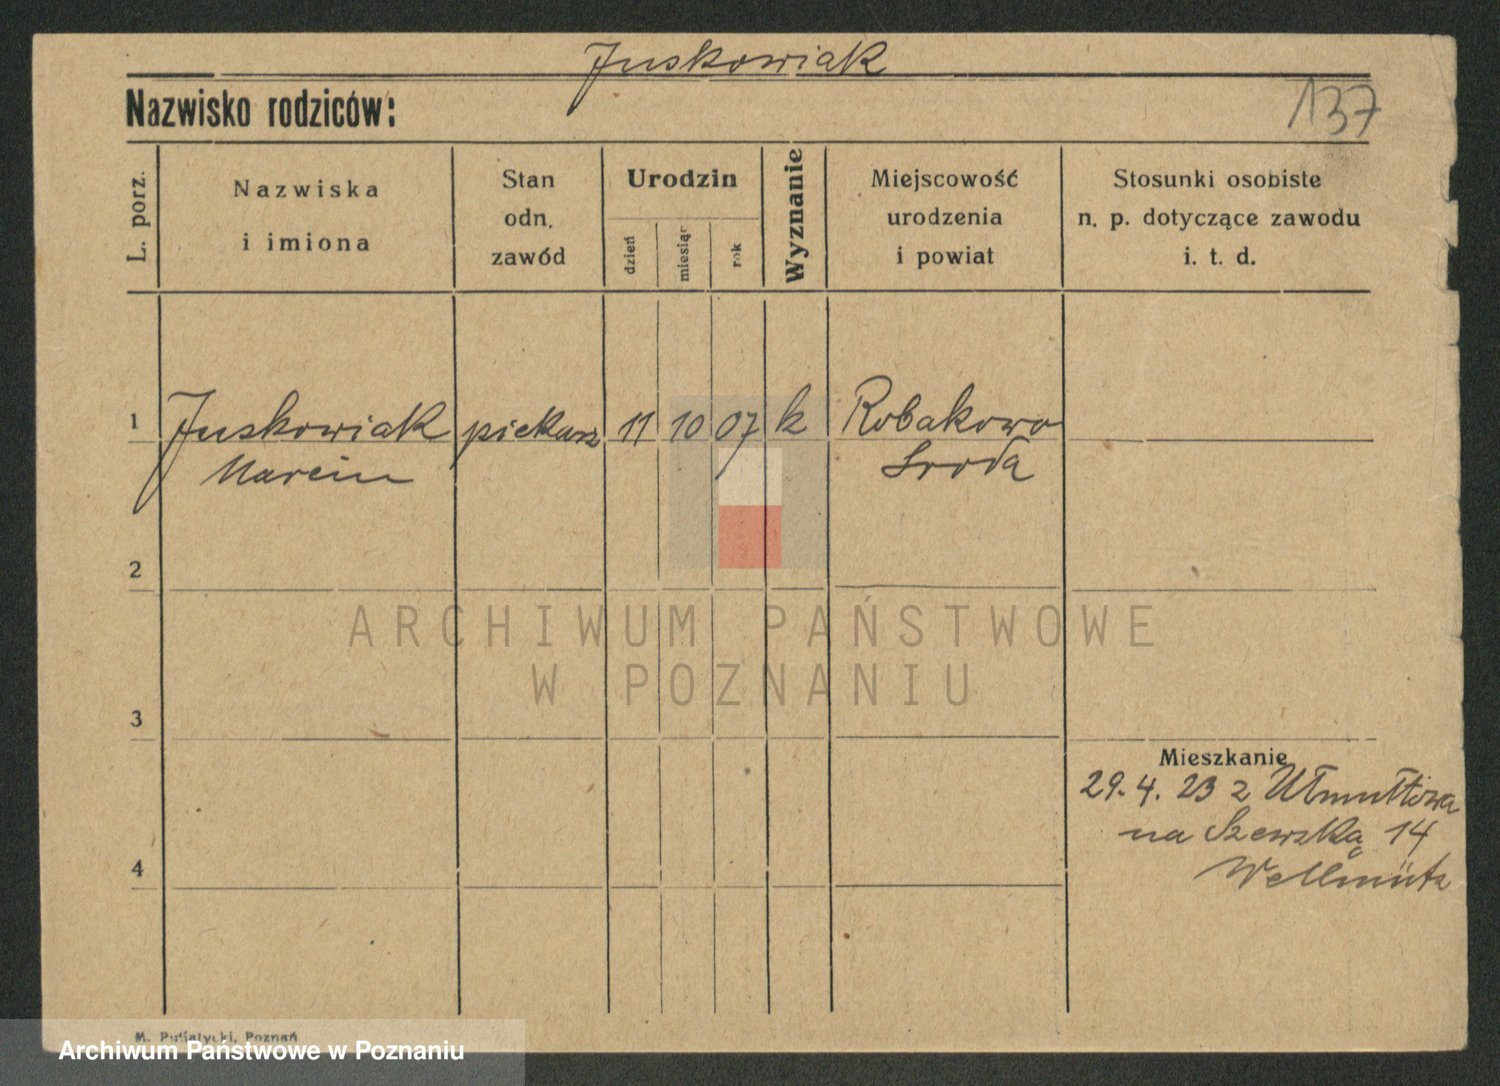 Juskowiak
137
Nazwisko rodziców:
L. porz.
Nazwiska
i imiona
Stan
odn.
zawód
Urodzin
dzień
miesiąc
rok
Wyznanie
Miejscowość
urodzenia
i powiat
Stosunki osobiste
n. p. dotyczące zawodu
i. t. d.
1 Juskowiak piekarz 11 10 07 k Robakowo
Marcin Sroda
2
ARCHIWUM PAŃSTWOWE
W POZNANIU
3
Mieszkanie
29. 4. 23 z
na Szewską 14
4
M. Putiatycki, Poznań
Archiwum Państwowe w Poznaniu